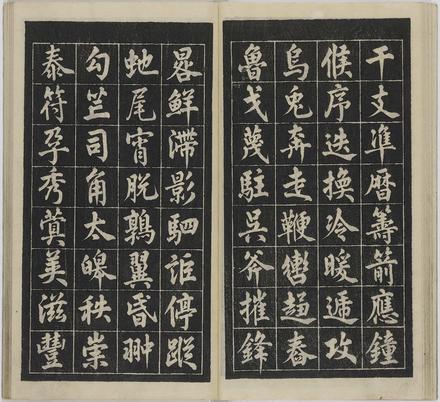 干支凖暦籌箭應鐘
候序迭換冷暖遞攻
烏兔奔走鞭轡趨舂
魯戈蔑駐吳斧摧鋒
晷鮮滯影駟詎停蹤
虵尾宵脫鶉翼昏翀
勾芒司角太皞秩崇
泰符孕秀蓂莢滋豐